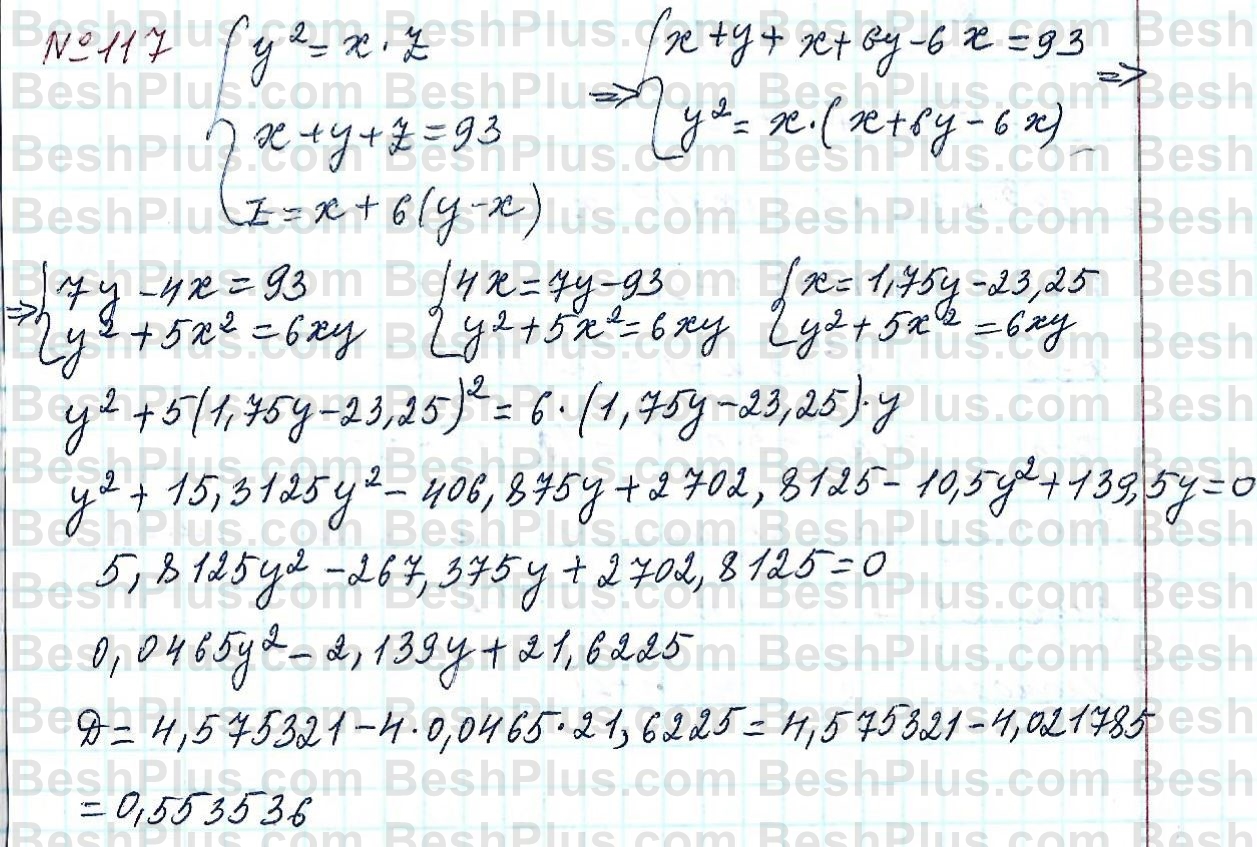 №117 { y² = x · z
x + y + z = 93
z = x + 6(y-x)
=> { x + y + x + 6y - 6x = 93
y² = x · (x + 6y - 6x) =>
=> { 7y - 4x = 93
y² + 5x² = 6xy
{ 4x = 7y - 93
y² + 5x² = 6xy
{ x = 1,75y - 23,25
y² + 5x² = 6xy
y² + 5(1,75y - 23,25)² = 6 · (1,75y - 23,25) · y
y² + 15,3125y² - 406,875y + 2702,8125 - 10,5y² + 139,5y = 0
5,8125y² - 267,375y + 2702,8125 = 0
0,0465y² - 2,139y + 21,6225
D = 4,575321 - 4 · 0,0465 · 21,6225 = 4,575321 - 4,021785
= 0,553536
BeshPlus.com